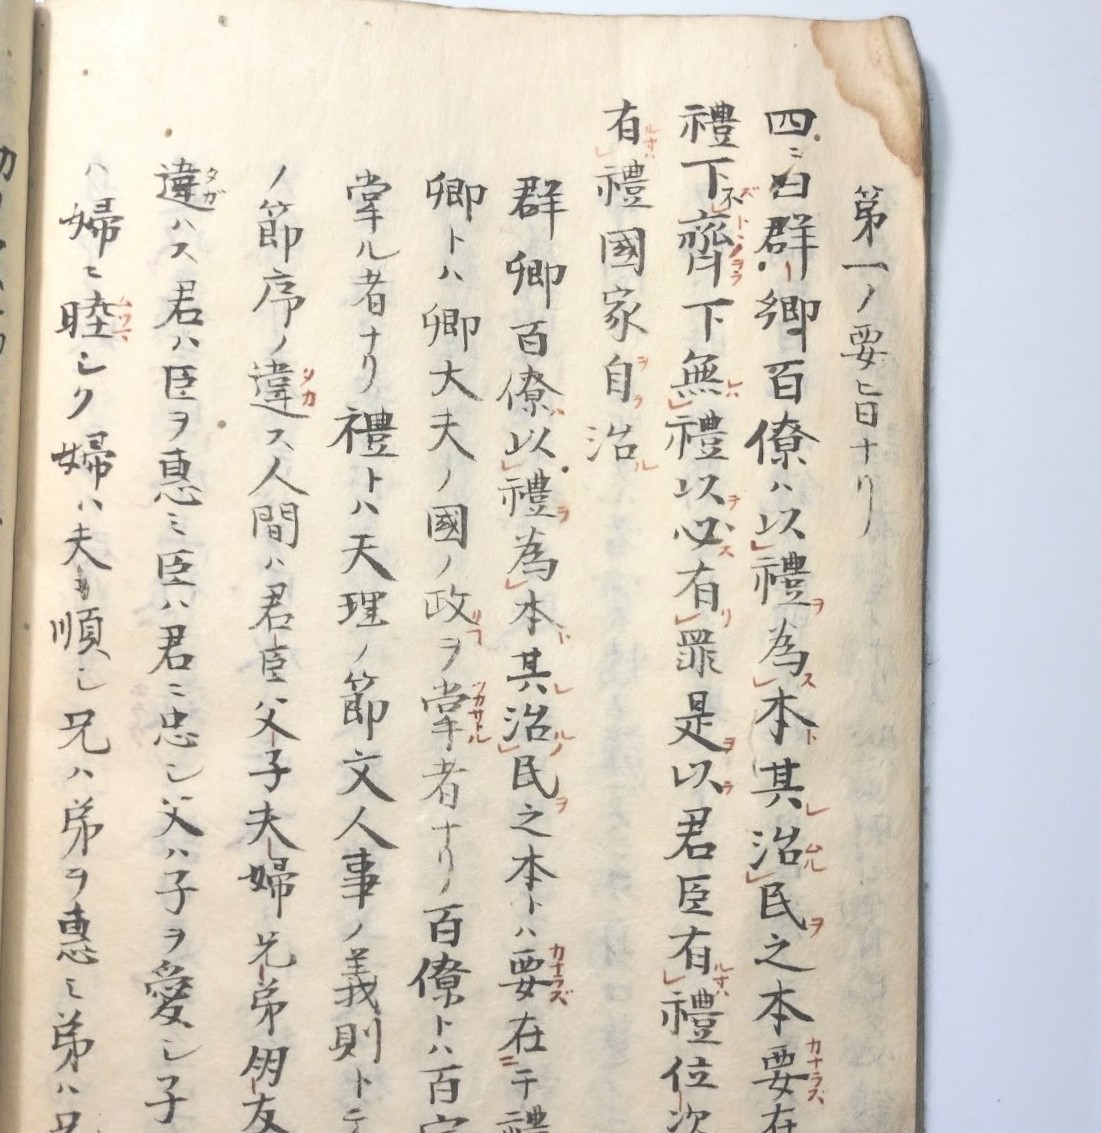 第一ノ要旨ナリ
四ニ曰群卿百僚ハ以禮為本其治民之本要在
禮下不齊下無禮以必有罪是以君臣有禮位次
有禮國家自治
群卿百僚以禮為本其治民之本トハ要在于禮
卿トハ卿大夫ノ國ノ政ヲ掌者ナリ百僚トハ百官
掌ル者ナリ禮トハ天理ノ節文人事ノ義則ト云
ノ節序ノ違ス人間ハ君臣父子夫婦兄弟朋友
違ハス君ハ臣ヲ惠ミ臣ハ君ニ忠シ父ハ子ヲ愛シ子
ハ婦ニ睦シク婦ハ夫ニ順シ兄ハ弟ヲ惠ミ弟ハ兄